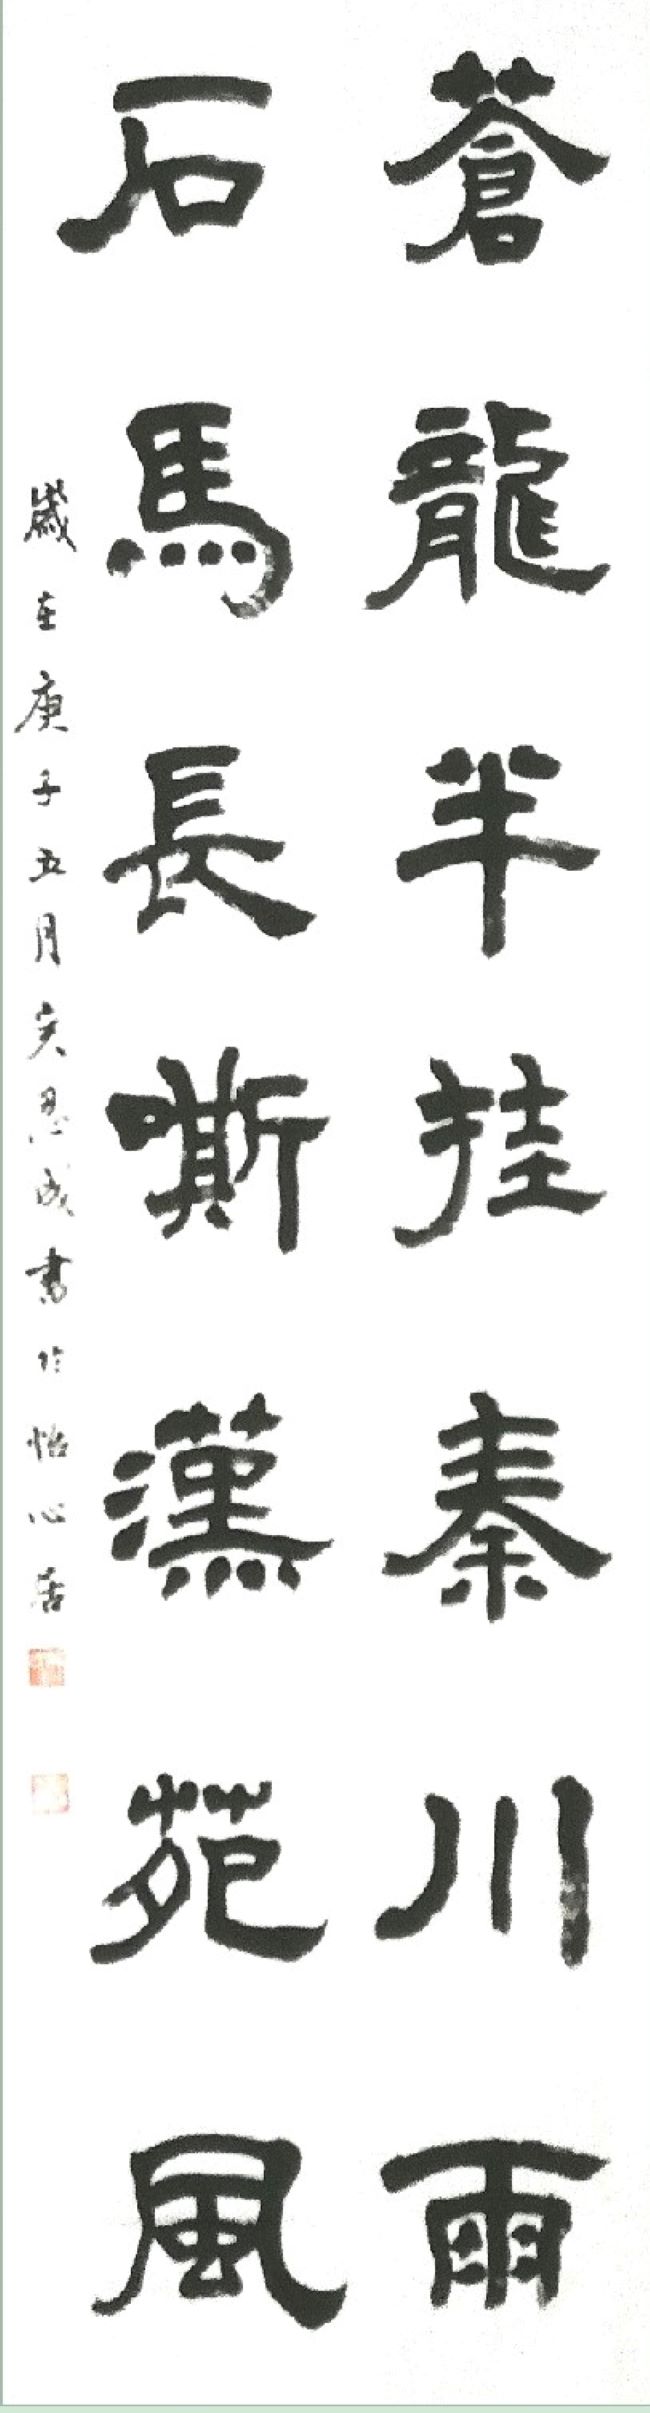 蒼龍半挂秦川雨
石馬長嘶漢苑風
歲在庚子五月 思成書於怡心居